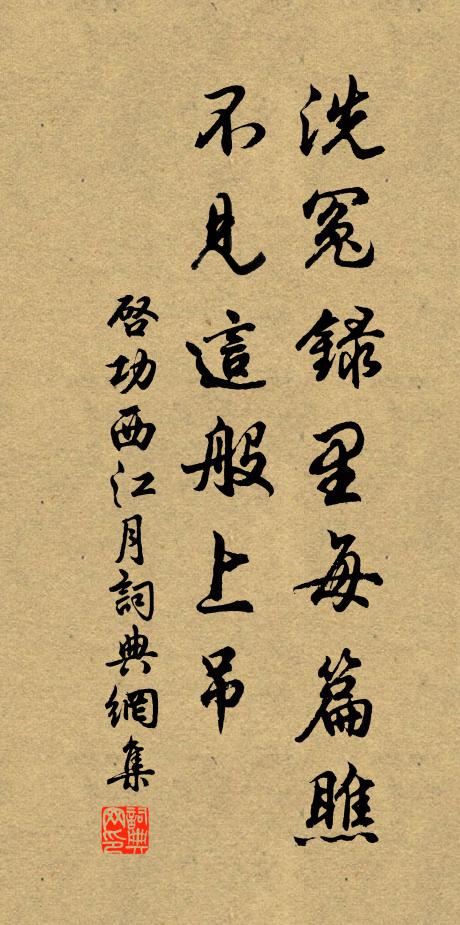 洗冤錄里每篇瞧
不見這般上吊
啓功西江月詞典網集
詞典网印